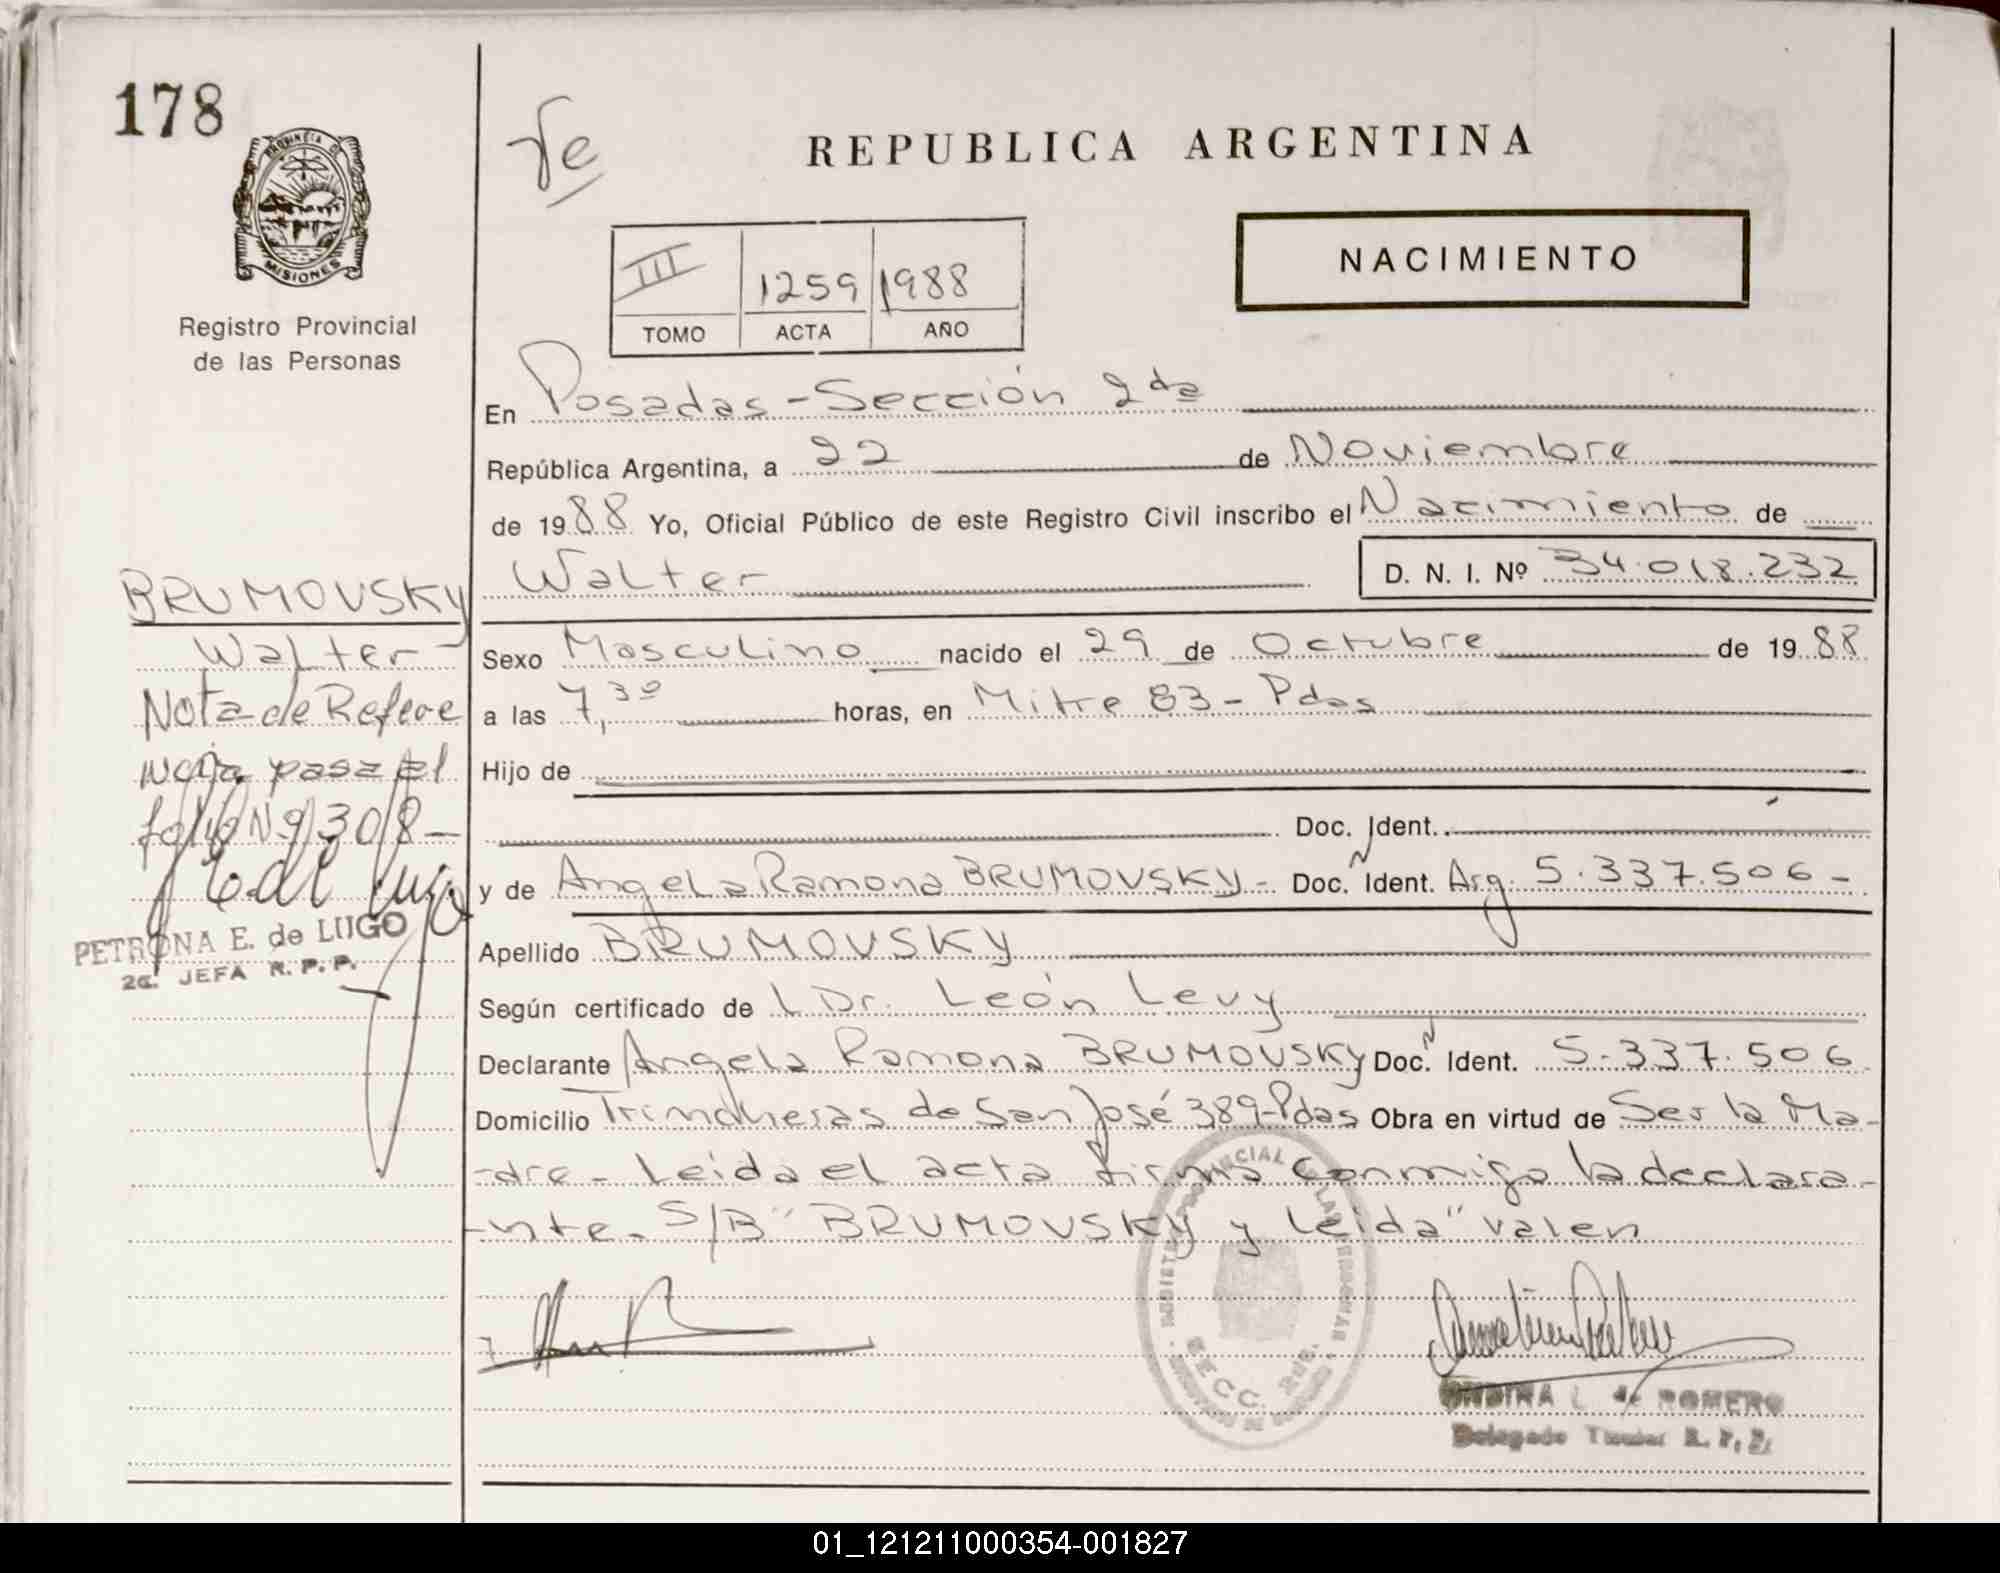 178
PROVINCIA DE
MISIONES
Registro Provincial
de las Personas
REPUBLICA ARGENTINA
NACIMIENTO
III 1259 1988
TOMO ACTA AÑO
En Posadas - Sección 2da
República Argentina, a 22 de Noviembre
de 1988 Yo, Oficial Público de este Registro Civil inscribo el Nacimiento de
Walter D. N. I. Nº 34.018.232
Sexo Masculino nacido el 29 de Octubre de 1988
a las 7,30 horas, en Mitre 83 - Pdas
Hijo de
Doc. Ident.
y de Angela Ramona BRUMOVSKY - Doc. Ident. Arg. 5.337.506 -
Apellido BRUMOVSKY
Según certificado de l Dr. León Levy
Declarante Angela Ramona BRUMOVSKY Doc. Ident. 5.337.506
Domicilio Trincheras de San José 389-Pdas Obra en virtud de Ser la Ma-
-dre - Leida el acta firma conmigo la declara-
-nte. S/B "BRUMOVSKY y Leida" valen
BRUMOVSKY
Walter
Nota de Refere
ncia pasa al
folio Nº 308 -
PETRONA E. de LUGO
2a. JEFA R. P. P.
ONDINA L. de ROMERO
Delegado Titular R. P. P.
01_121211000354-001827